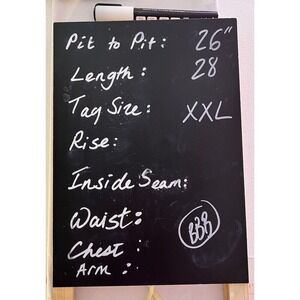 Pit to Pit: 26"
Length: 28
Tag Size: XXL
Rise:
Inside Seam:
Waist:
BBR
Chest:
Arm: